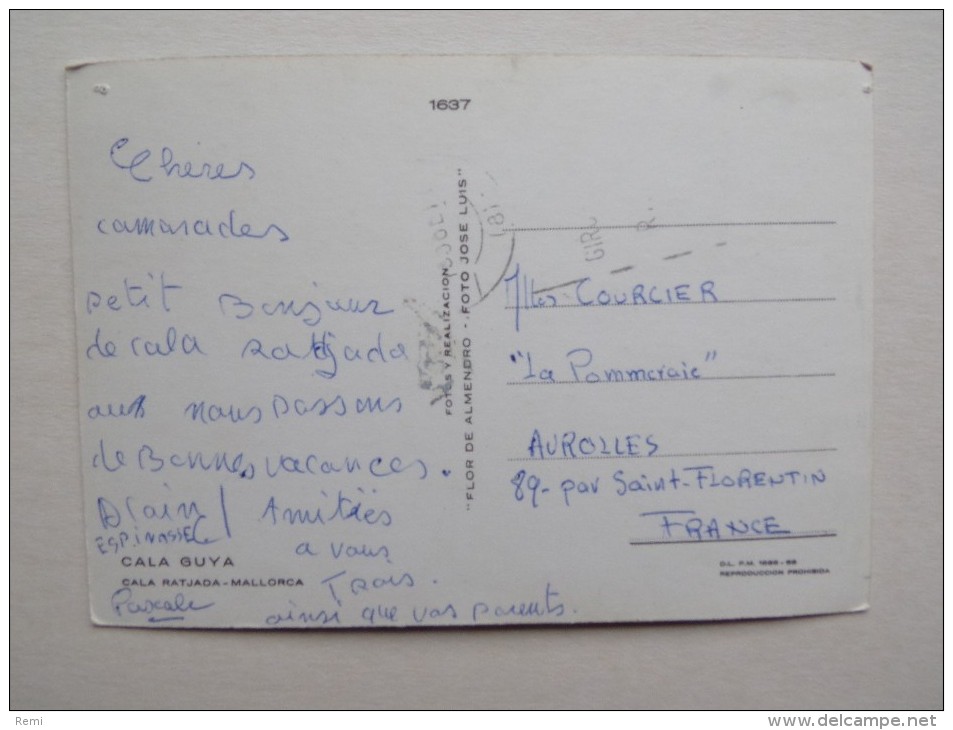 1637
Chères
camarades
petit Bonjour
de cala Ratjada
aus nous passons
de Bonnes vacances.
Alain / Amitiés
ESPINASSE
a vous
CALA GUYA
CALA RATJADA - MALLORCA
Trois.
Pascale
ainsi que vos parents.
FOTOS Y REALIZACION
"FLOR DE ALMENDRO - FOTO JOSE LUIS"
GIRO
Mlles COURCIER
"La Pommeraie"
AVROLLES
89 - par Saint-FLORENTIN
FRANCE
REPRODUCCION PROHIBIDA
Remi
www.delcampe.net